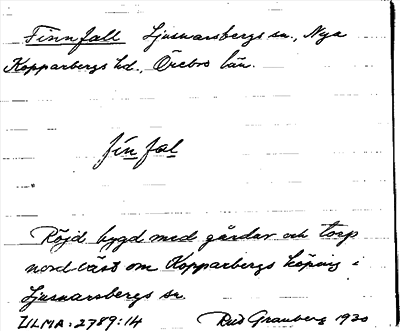 Finnfall Ljusnarsbergs sn., Nya
Kopparbergs hd., Örebro län.
fin fal
Röjd bygd med gårdar och torp
nordväst om Kopparbergs köping i
Ljusnarsbergs sn.
ULMA: 2789:14 Rud Granberg 1930